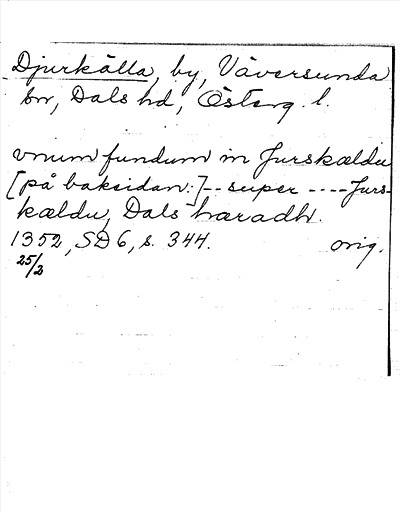 Djurkälla, by, Väversunda
sn, Dals hd, Österg. l.
vnum fundum in Jurskældu
[på baksidan:] -- super ---- Jurs-
kældu, Dals hæradh.
1352, SD 6, s. 344. orig.
25/2